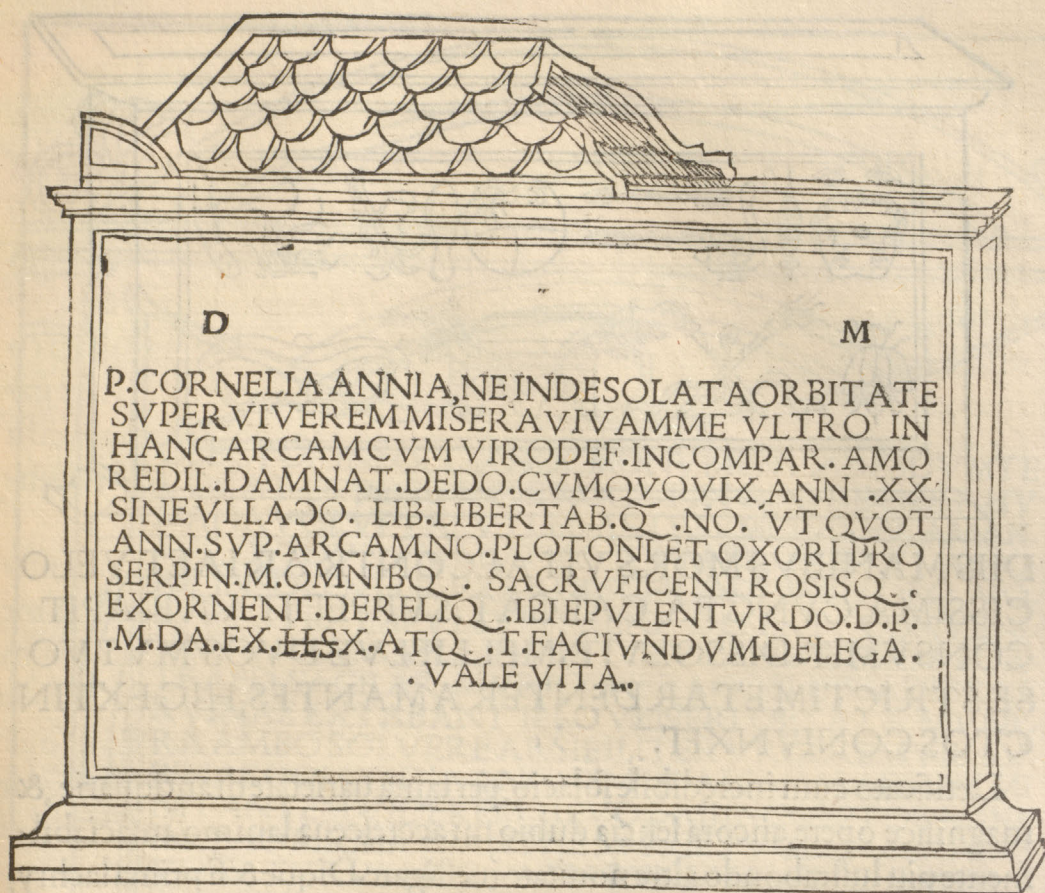 D M
P.CORNELIA ANNIA,NE IN DESOLATA ORBITATE
SVPERVIVEREM MISERA VIVAM ME VLTRO IN
HANC ARCAM CVM VIRO DEF.INCOMPAR. AMO
RE DIL.DAMNAT.DEDO.CVM QVO VIX ANN .XX
SINE VLLA ƆO. LIB.LIBERTAB.Q .NO. VT QVOT
ANN.SVP.ARCAM NO.PLOTONI ET OXORI PRO
SERPIN.M.OMNIBQ . SACRVFICENT ROSISQ .
EXORNENT.DE RELIQ .IBI EPVLENTVR DO.D.P.
.M.DA.EX.HS X.ATQ .T.FACIVNDVM DELEGA.
. VALE VITA.